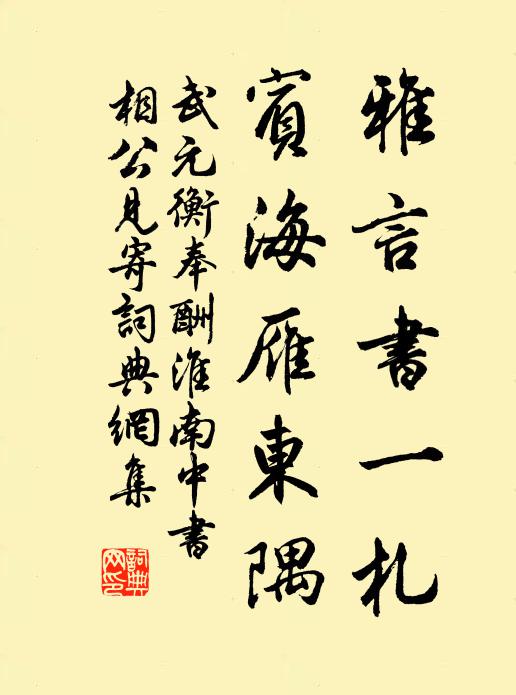 雅言書一札
賓海雁東隅
武元衡奉酬淮南中書
相公見寄詞典網集
詞典網印